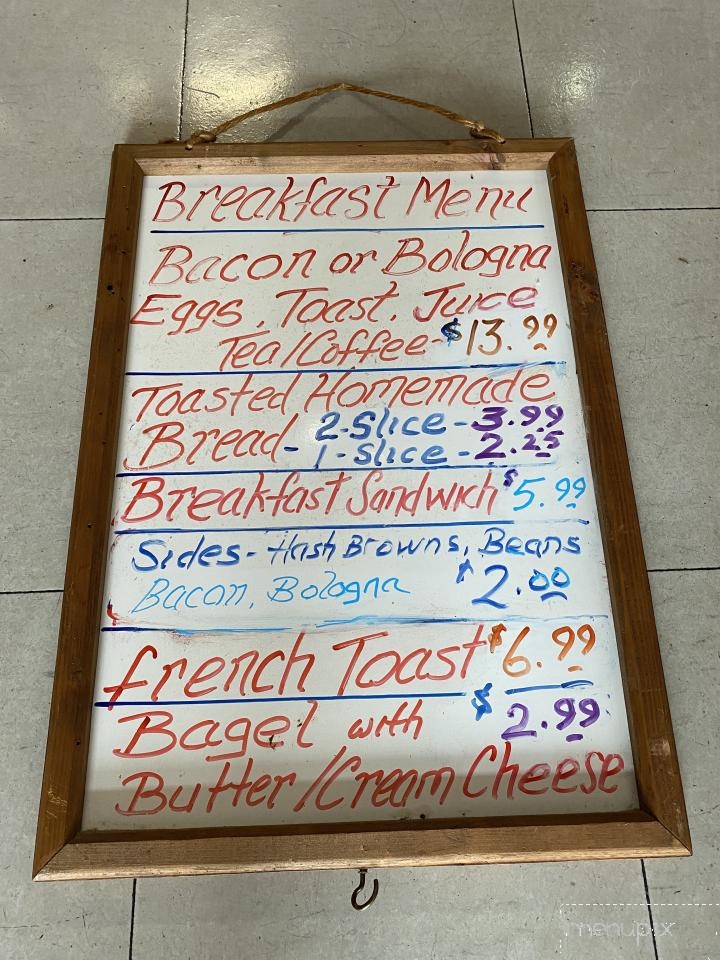 Breakfast Menu
Bacon or Bologna
Eggs, Toast, Juice
Tea/Coffee-$13.99
Toasted Homemade
Bread- 2-Slice-3.99
1-Slice-2.25
Breakfast Sandwich $5.99
Sides-Hash Browns, Beans
Bacon, Bologna $2.00
french Toast $6.99
Bagel with $2.99
Butter/Cream Cheese
menupix